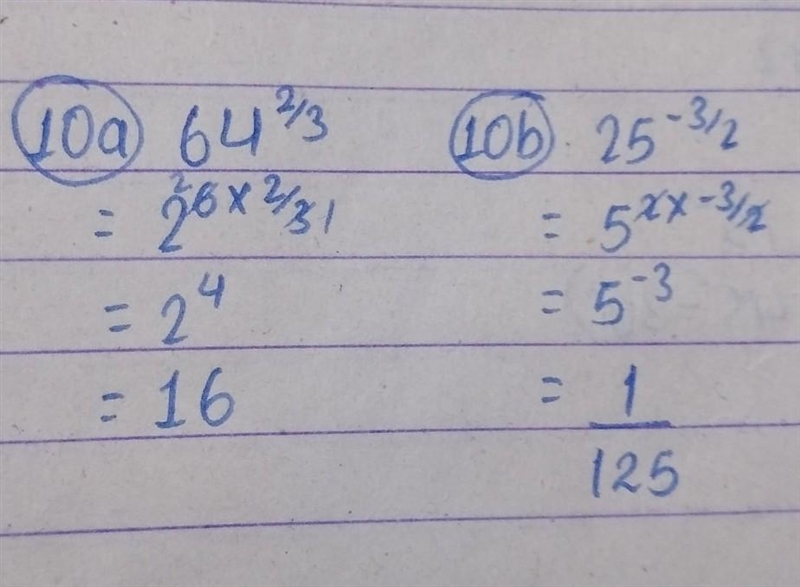 10a 64^2/3
= 2^6 x 2/3
= 2^4
= 16
10b 25^-3/2
= 5^2 x -3/2
= 5^-3
= 1/125